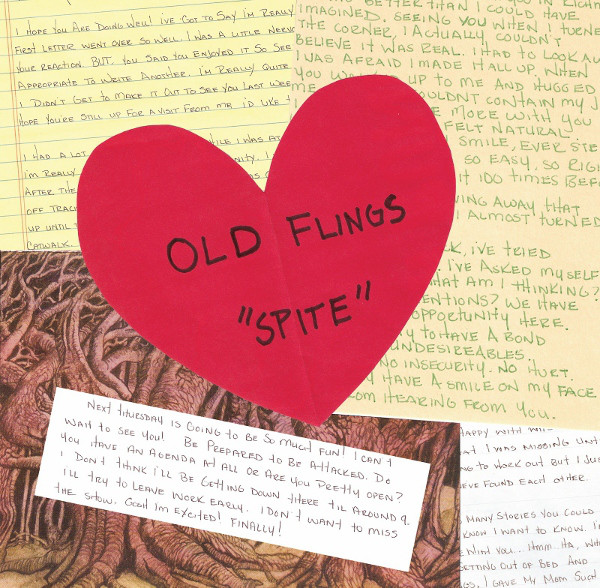 I HOPE YOU ARE DOING WELL! I'VE GOT TO SAY I'M REALLY
FIRST LETTER WENT OVER SO WELL. I WAS A LITTLE NERV
YOUR REACTION. BUT, YOU SAID YOU ENJOYED IT SO SEE
APPROPRIATE TO WRITE ANOTHER. I'M REALLY QUITE
I DIDN'T GET TO MAKE IT OUT TO SEE YOU LAST WEE
HOPE YOU'RE STILL UP FOR A VISIT FROM ME. I'D LIKE
I HAD A LOT
WHILE I WAS AT
I'M REALLY
AFTER THE
OFF TRAC
UP UNTIL
CATWALK.
BETTER THAN I COULD HAVE
IMAGINED. SEEING YOU WHEN I TURNE
THE CORNER, I ACTUALLY COULDN'T
BELIEVE IT WAS REAL. I HAD TO LOOK AW
I WAS AFRAID I MADE IT ALL UP. WHEN
YOU UP TO ME AND HUGGED
ME OULDN'T CONTAIN MY J
MORE WITH YOU
FELT NATURAL.
SMILE, EVER STE
SO EASY, SO RIGH
IT 100 TIMES BEF
VING AWAY THAT
I ALMOST TURNED
K, I'VE TRIED
. I'VE ASKED MYSELF
HAT AM I THINKING?
ENTIONS? WE HAVE
OPPORTUNITY HERE.
Y TO HAVE A BOND
UNDESIREABLES.
NO INSECURITY. NO HURT.
Y HAVE A SMILE ON MY FACE
OM HEARING FROM YOU.
OLD FLINGS
"SPITE"
NEXT THURSDAY IS GOING TO BE SO MUCH FUN! I CAN'T
WAIT TO SEE YOU! BE PREPARED TO BE ATTACKED. DO
YOU HAVE AN AGENDA AT ALL OR ARE YOU PRETTY OPEN?
I DON'T THINK I'LL BE GETTING DOWN THERE TIL AROUND 9.
I'LL TRY TO LEAVE WORK EARLY. I DON'T WANT TO MISS
THE SHOW. GOD! I'M EXCITED! FINALLY!
HAPPY WITH
AT I WAS MISSING UNT
NG TO WORK OUT BUT I JUS
EVE FOUND EACH OTHER.
MANY STORIES YOU COULD
KNOW I WANT TO KNOW. I'
MIND YOU... HMM HA, WH
GETTING OUT OF BED AND
GS, I GAVE MY MOM SUCH